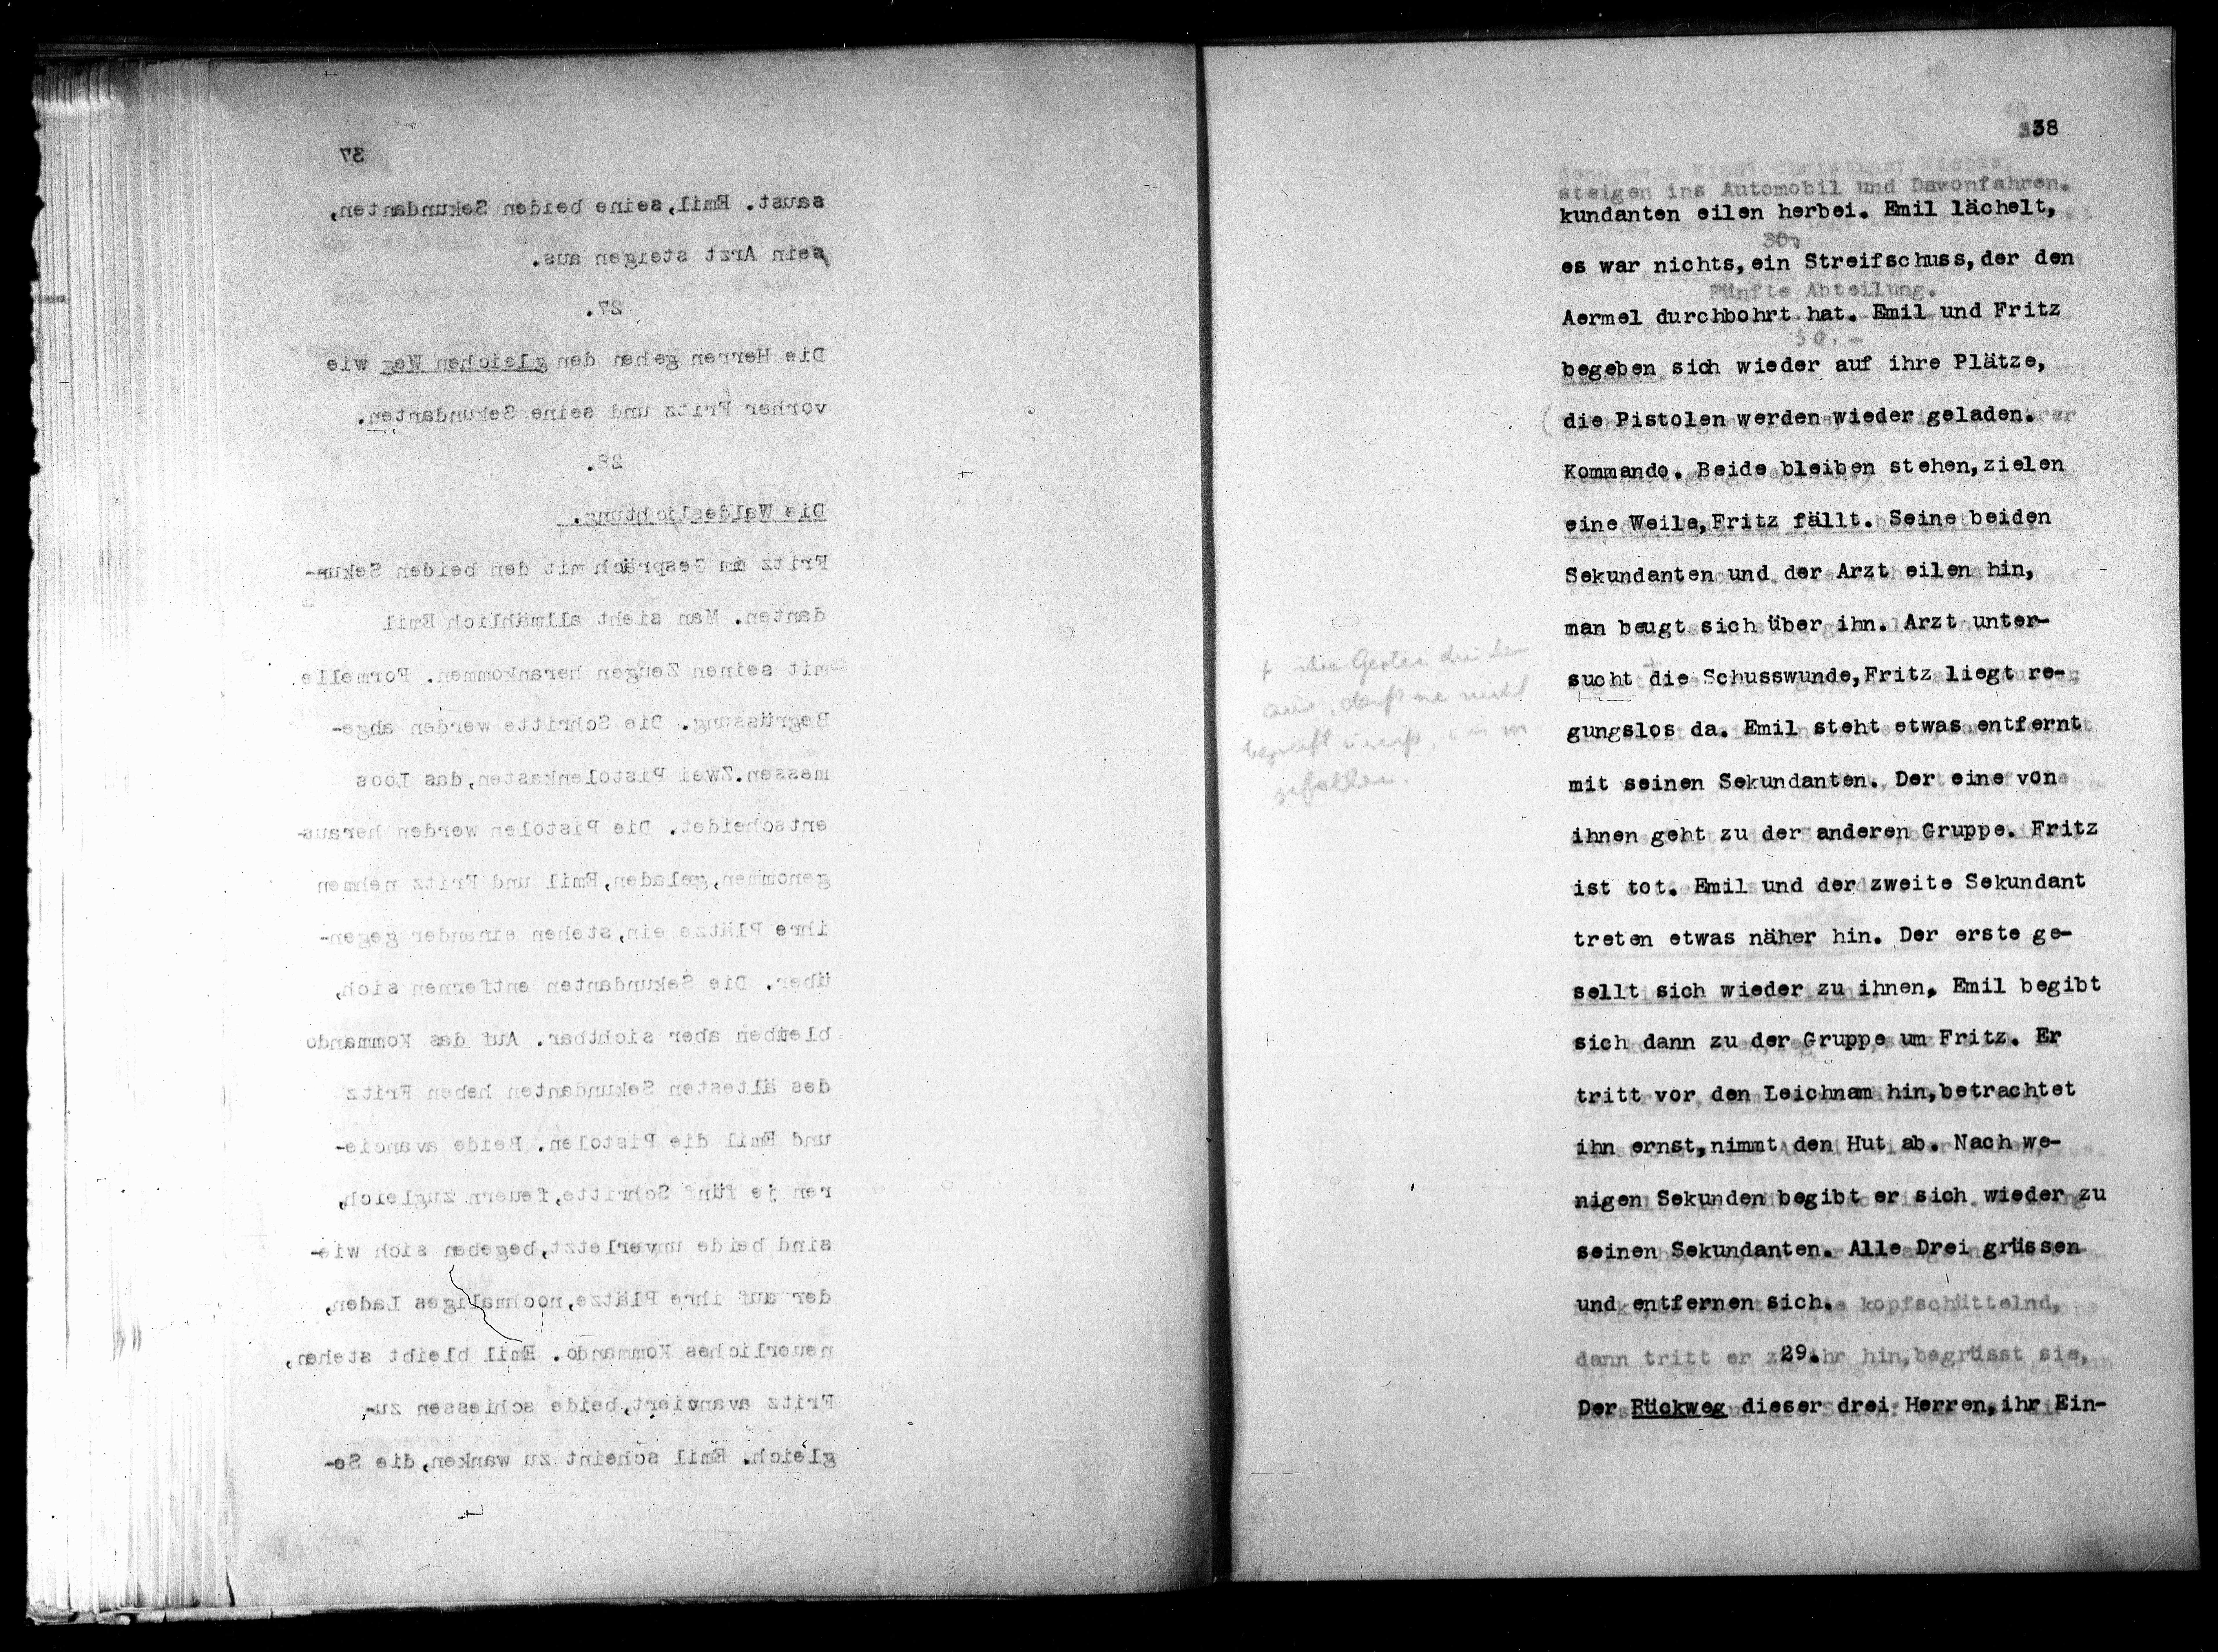 37
saust. Emil,seine beiden Sekundanten,
sein Arzt steigen aus.
27.
Die Herren gehen den gleichen Weg wie
vorher Fritz und seine Sekundanten.
28.
Die Waldeslichtung.
Fritz im Gespräch mit den beiden Sekun-
danten. Man sieht allmählich Emil
mit seinen Zeugen herankommen. Formelle
Begrüssung. Die Schritte werden abge-
messen.Zwei Pistolenkasten,das Loos
entscheidet. Die Pistolen werden heraus-
genommen,geladen,Emil und Fritz nehmen
ihre Plätze ein,stehen einander gegen-
über. Die Sekundanten entfernen sich,
bleiben aber sichtbar. Auf das Kommando
des ältesten Sekundanten heben Fritz
und Emil die Pistolen. Beide avancie-
ren je fünf Schritte,feuern zugleich,
sind beide unverletzt,begeben sich wie-
der auf ihre Plätze,nochmaliges Laden,
neuerliches Kommando. Emil bleibt stehen,
Fritz avanziert,beide schiessen zu-
gleich. Emil scheint zu wanken,die Se-
38
steigen ins Automobil und Davonfahren.
kundanten eilen herbei. Emil lächelt,
30.
es war nichts,ein Streifschuss,der den
Fünfte Abteilung.
Aermel durchbohrt hat. Emil und Fritz
30.
begeben sich wieder auf ihre Plätze,
die Pistolen werden wieder geladen.
Kommando. Beide bleiben stehen,zielen
eine Weile,Fritz fällt. Seine beiden
Sekundanten und der Arzt eilen hin,
man beugt sich über ihn. Arzt unter-
sucht + die Schusswunde,Fritz liegt re-
gungslos da. Emil steht etwas entfernt
mit seinen Sekundanten. Der eine von
ihnen geht zu der anderen Gruppe. Fritz
ist tot. Emil und der zweite Sekundant
treten etwas näher hin. Der erste ge-
sellt sich wieder zu ihnen, Emil begibt
sich dann zu der Gruppe um Fritz. Er
tritt vor den Leichnam hin,betrachtet
ihn ernst,nimmt den Hut ab. Nach we-
nigen Sekunden begibt er sich wieder zu
seinen Sekundanten. Alle Drei grüssen
und entfernen sich.
kopfschüttelnd,
29.
dann tritt er zu ihr hin,begrüsst sie,
Der Rückweg dieser drei Herren,ihr Ein-
+ ihre Gesten
aus, daß sie nicht
gefallen.